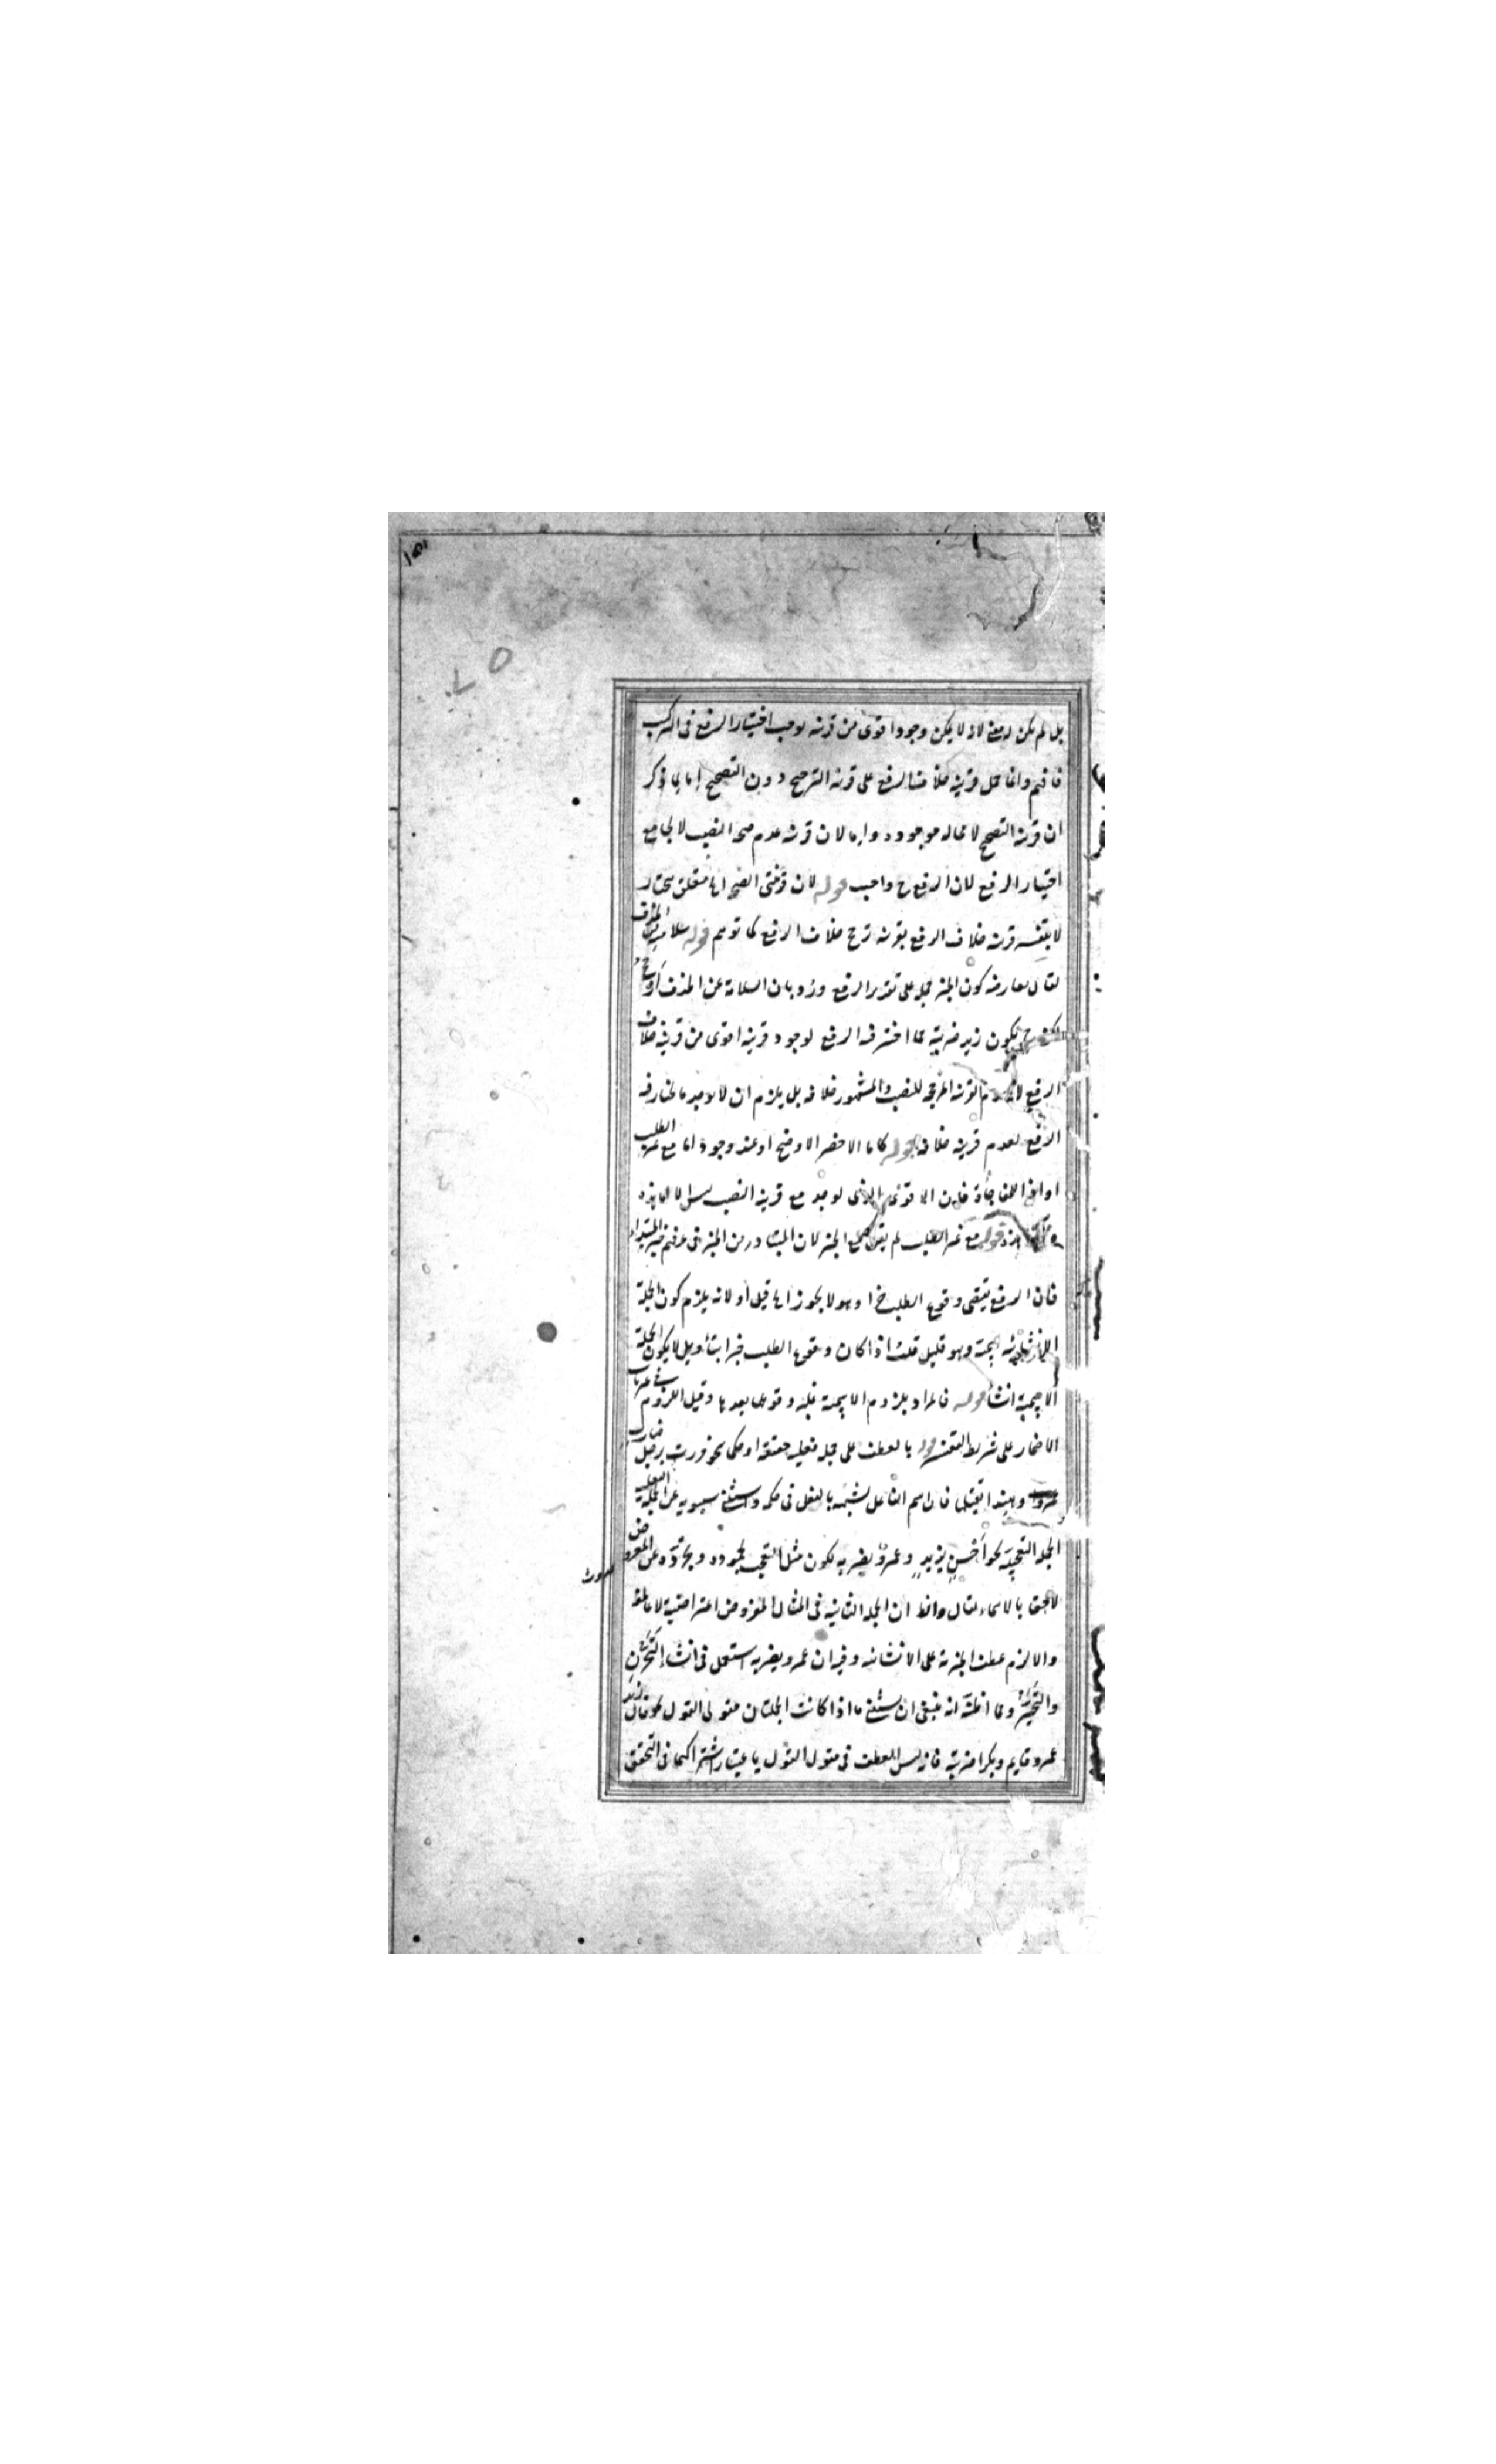 بل لم يكن له معنى لانه لا يكن وجود اقوى من قرينة توجب اختيار الرفع فى التركيب
فافهم وانما حمل قرينة خلاف الرفع على قرينة الترجيح دون التصحيح اما لما ذكر
ان قرينة التصحيح لا محالة موجودة واما لان قرينة عدم صحة النصب لا يجامع
اختيار الرفع لان الرفع ح واجب قوله لان قرينتى متعلق بيختار
لا بتفسير قرينة خلاف الرفع بقرينة ترجح خلاف الرفع كما توهم قوله سلامته عن الحذف
يقال معارضة كون الخبر جملة على تقدير الرفع ورد بان السلامة عن الحذف ارجح
ح يكون زيد ضربته مما اختير فيه الرفع لوجود قرينة اقوى من قرينة خلاف
الرفع القرينة المرجحة للنصب والمشهور خلافه بل يلزم ان لا يوجد ما يختار فيه
الرفع لعدم قرينة خلافه قوله كاما الاخضر الاوضح او عند وجود اما مع غير الطلب
او اذا للمفاجأة فان الاقوى الذى يوجد مع قرينة النصب ليس الا اما هذه
قوله مع غير الطلب لم يقل مع الخبر لان المتبادر من الخبر فى عرفهم خبر المبتدأ
فان الرفع يقتضى وقوع الطلب خبرا وهو لا يجوز الا قيل او لانه يلزم كون الجملة
الانشائية اسمية وهو قليل قلت اذا كان وقوع الطلب خبرا بتأويل لا يكون الجملة
الاسمية انشاء قوله فالمراد بلزوم الاسمية غلبة وقوعها بعدها وقيل اللزوم فى غير باب
الاضمار على شريطة التفسير قوله بالعطف على جملة فعلية حقيقة او حكما نحو مررت برجل ضارب
عمروا وهندا يقتلها فان اسم الفاعل يشبه بالفعل فى حكمه واستثنى سيبويه عن الجملة الفعلية
الجملة التعجبية نحو أَحْسِنْ بزيدٍ وعمروٌ يضربه لكون مثل التعجب لجموده وتجرده عن المعروض
لاحق بالاسماء يقال وانظ ان الجملة الثانية فى المثال المفروض اعتراضية لا عاطفة
والا لزم عطف الخبرية على الانشائية وفيه ان عمرو يضربه استعمل فى انشاء التحزن
والتحسر ومما اظنه انه ينبغى ان يستثنى ما اذا كانت الجملتان مقولى القول نحو قال زيد
عمرو قايم وبكرا ضربته فانه ليس العطف فى مقول القول باعتبار اشتراكهما فى التحقق